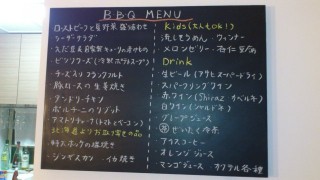 BBQ MENU
・ローストビーフと長野菜 盛り合わせ
シーザーサラダ
・えだ豆
・チーズ入りフランクフルト
・豚ロースの生姜焼き
・タンドリーチキン
・ポルチーニのリゾット
・アマトリチャーナ(トマトとベーコン)
北海道よりお取り寄せの品
・特大ホッケの塩焼き
・ジンギスカン ・イカ焼き
Kids(大人もOK!)
・流しそうめん ・ウィンナー
・メロンゼリー ・杏仁豆腐
Drink
・生ビール(アサヒスーパードライ)
・スパークリングワイン
・赤ワイン(Shiraz カベルネ)
・白ワイン(シャルドネ)
・グレープジュース
・アイスコーヒー
・オレンジジュース
・マンゴジュース ・カクテル各種